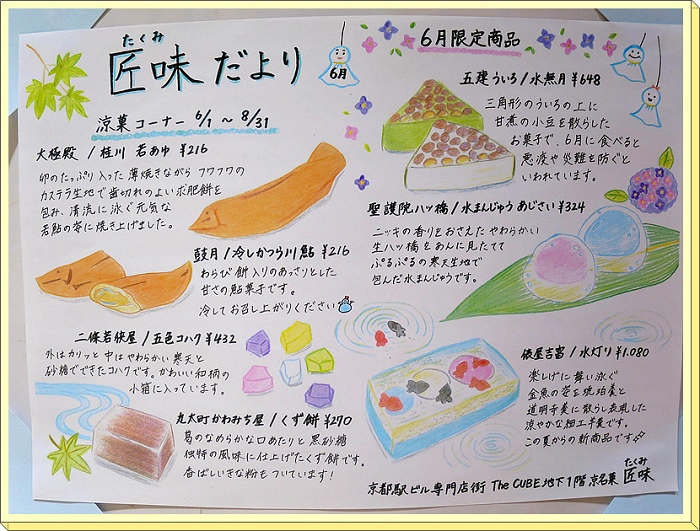 たくみ
匠味だより
6月
涼菓コーナー 6/1 〜 8/31
大極殿 / 桂川 若あゆ ¥216
卵のたっぷり入った薄焼きながら フワフワの
カステラ生地で歯切れのよい求肥餅を
包み、清流に泳ぐ元気な
若鮎の姿に焼き上げました。
鼓月 / 冷しかつら川鮎 ¥216
わらび餅入りのあっさりとした
甘さの鮎菓子です。
冷してお召し上がりください
二條若狭屋 / 五色コハク ¥432
外はカリッと 中はやわらかい寒天と
砂糖でできたコハクです。かわいい和柄の
小箱に入っています。
丸太町かわみち屋 / くず餅 ¥270
葛のなめらかな口あたりと黒砂糖
独特の風味に仕上げたくず餅です。
香ばしいきな粉もついています!
6月限定商品
五建ういろ / 水無月 ¥648
三角形のういろの上に
甘煮の小豆を散らした
お菓子で、6月に食べると
悪疫や災難を防ぐと
いわれています。
聖護院八ッ橋 / 水まんじゅう あじさい ¥324
ニッキの香りをおさえた やわらかい
生八ッ橋をあんに見たてて
ぷるぷるの寒天生地で
包んだ水まんじゅうです。
俵屋吉富 / 水灯り ¥1.080
楽しげに舞い泳ぐ
金魚の姿を琥珀羹と
道明寺羹に散らし表現した
涼やかな細工羊羹です。
この夏からの新商品です
京都駅ビル専門店街 The CUBE 地下1階 京名菓 匠味
たくみ